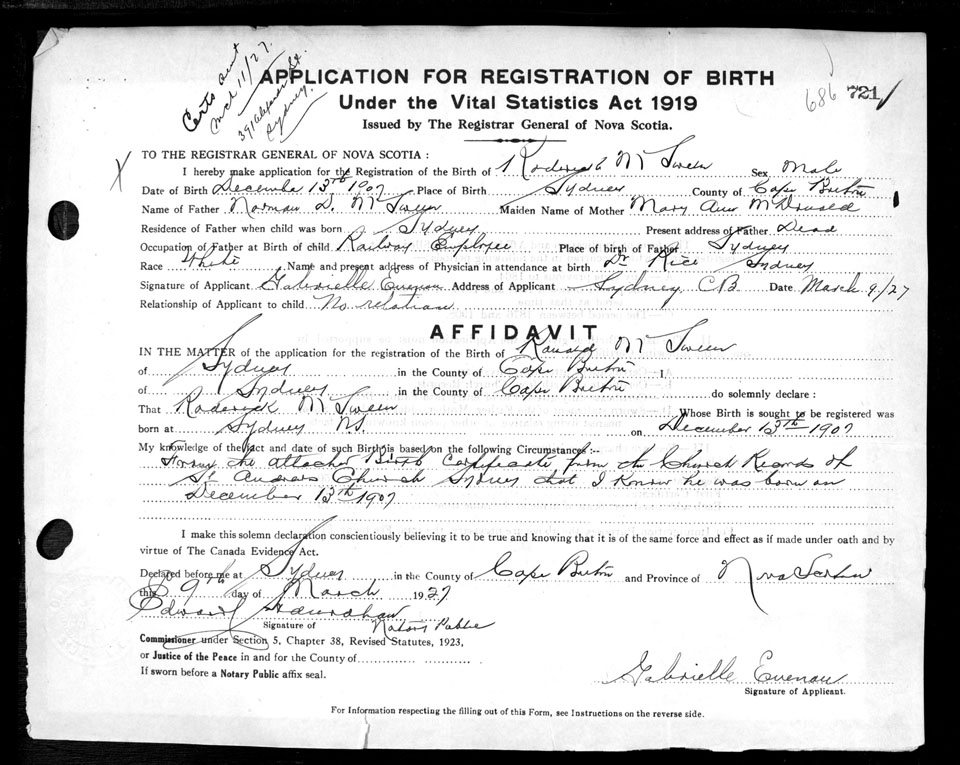 Certs sent
Mch 11/27.
Sydney.
APPLICATION FOR REGISTRATION OF BIRTH
686 721
Under the Vital Statistics Act 1919
Issued by The Registrar General of Nova Scotia.
X
TO THE REGISTRAR GENERAL OF NOVA SCOTIA :
I hereby make application for the Registration of the Birth of Roderick Mc Sween Sex Male
Date of Birth December 13th 1907 Place of Birth Sydney County of Cape Breton
Name of Father Norman D. Mc Sween Maiden Name of Mother Mary Ann McDonald
Residence of Father when child was born Sydney Present address of Father Dead
Occupation of Father at Birth of child Railway Employee Place of birth of Father Sydney
Race White Name and present address of Physician in attendance at birth Dr Rice Sydney
Signature of Applicant Gabrielle Address of Applicant Sydney CB Date March 9/27
Relationship of Applicant to child No relation
AFFIDAVIT
IN THE MATTER of the application for the registration of the Birth of Ronald Mc Sween
of Sydney in the County of Cape Breton I
of Sydney in the County of Cape Breton do solemnly declare :
That Roderick Mc Sween Whose Birth is sought to be registered was
born at Sydney NS. on December 13th 1907
My knowledge of the fact and date of such Birth is based on the following Circumstances :--
From the attached Birth Certificate from the Church Records of
St Andrews Church Sydney that I know he was born on
December 13th 1907
I make this solemn declaration conscientiously believing it to be true and knowing that it is of the same force and effect as if made under oath and by
virtue of The Canada Evidence Act.
Declared before me at Sydney in the County of Cape Breton and Province of Nova Scotia
this 9th day of March 1927
Edward
Signature of Notary Public
Commissioner under Section 5, Chapter 38, Revised Statutes, 1923,
or Justice of the Peace in and for the County of
If sworn before a Notary Public affix seal.
Gabrielle
Signature of Applicant.
For Information respecting the filling out of this Form, see Instructions on the reverse side.